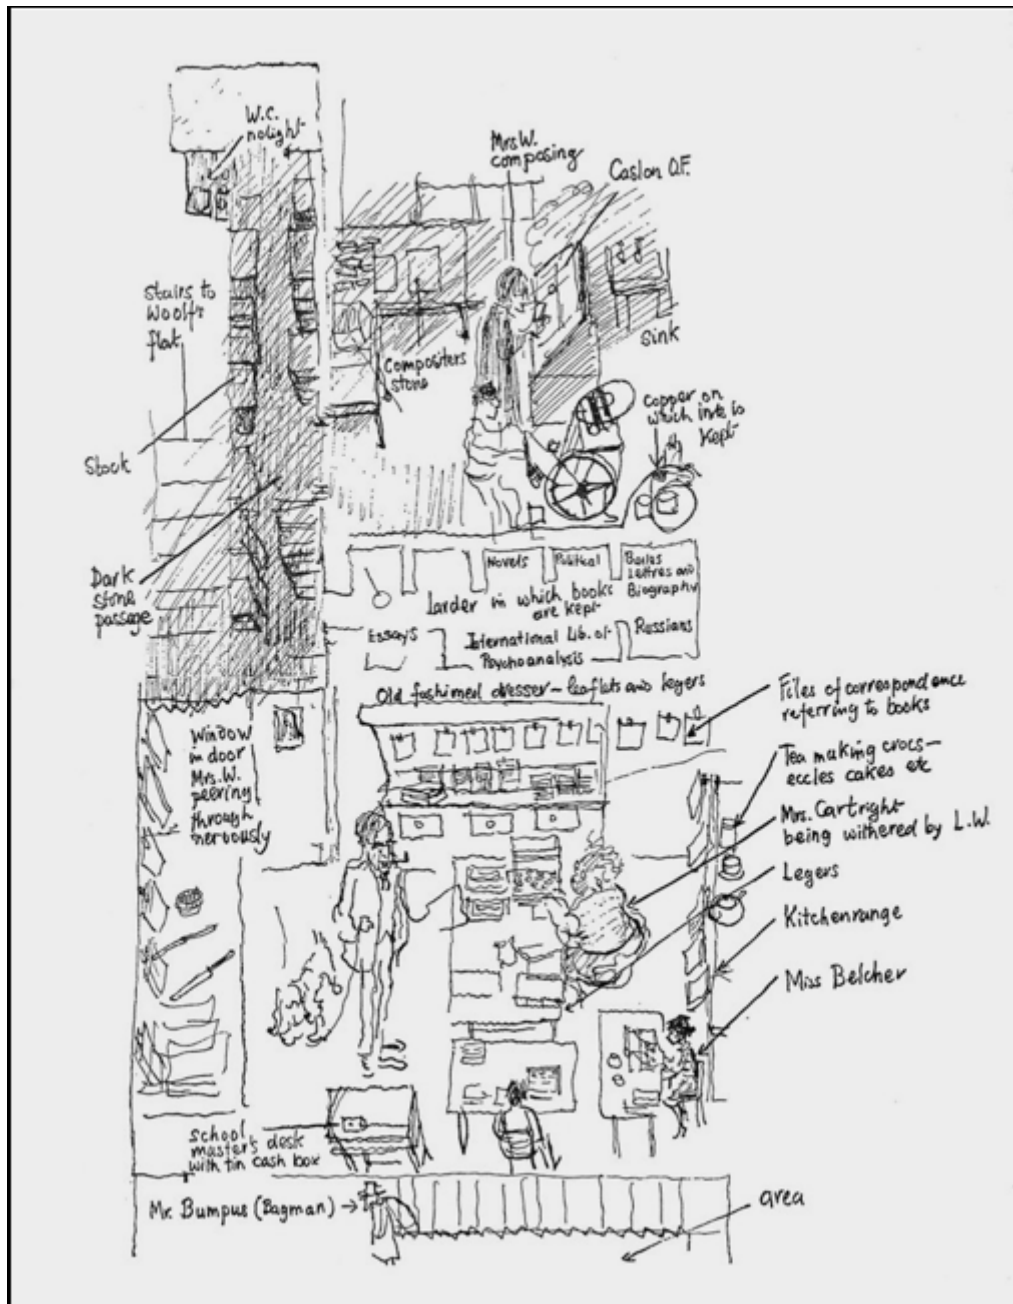 W.C.
nolight
Mrs W.
composing
Caslon O.F.
Stairs to
Woolf's
flat
Compositers
stone
Sink
copper on
which ink is
kept
Stock
Dark
stone
passage
Novels
Political
Belles
Lettres and
Biography
Larder in which books
are kept
Essays
International Lib. of
Psychoanalysis
Russians
Old fashioned dresser – leaflats and legers
Files of correspondence
referring to books
Window
in door
Mrs. W.
peering
through
nervously
Tea making crocs –
eccles cakes etc
Mrs. Cartright
being withered by L.W.
Legers
Kitchenrange
Miss Belcher
school
master's desk
with tin cash box
Mr. Bumpus (Bagman)
area